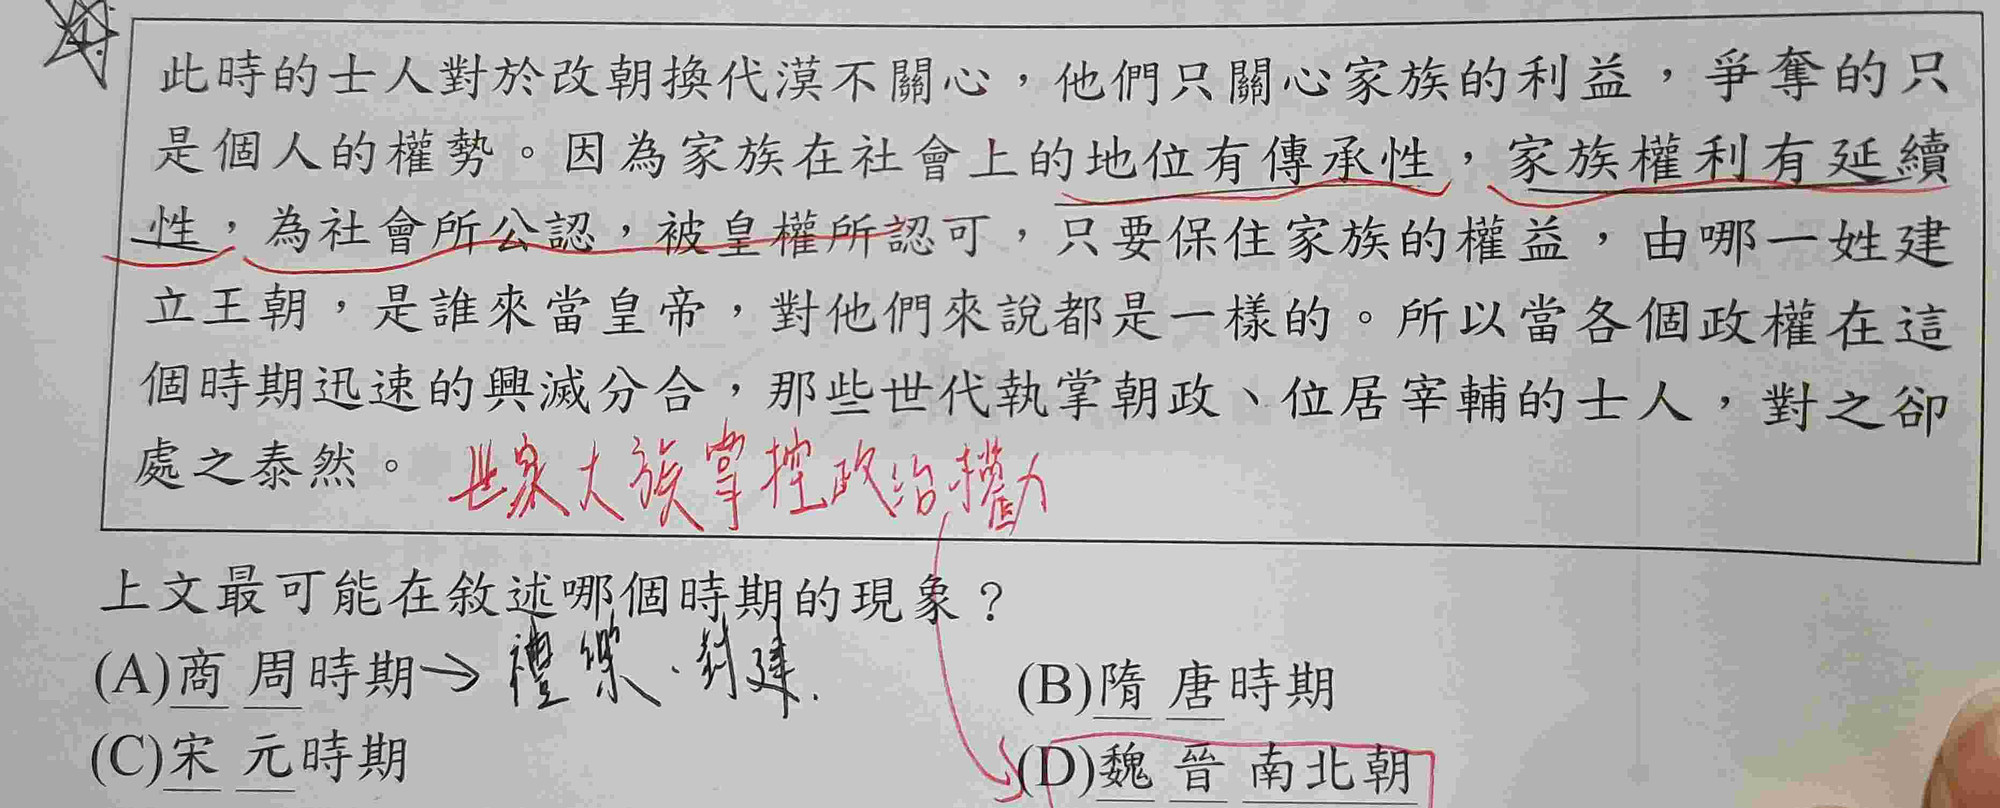 此時的士人對於改朝換代漠不關心，他們只關心家族的利益，爭奪的只
是個人的權勢。因為家族在社會上的地位有傳承性，家族權利有延續
性，為社會所公認，被皇權所認可，只要保住家族的權益，由哪一姓建
立王朝，是誰來當皇帝，對他們來說都是一樣的。所以當各個政權在這
個時期迅速的興滅分合，那些世代執掌朝政、位居宰輔的士人，對之卻
處之泰然。世家大族掌控政治權力
上文最可能在敘述哪個時期的現象？
(A)商 周時期→禮樂、封建.
(B)隋 唐時期
(C)宋 元時期
(D)魏 晉 南北朝